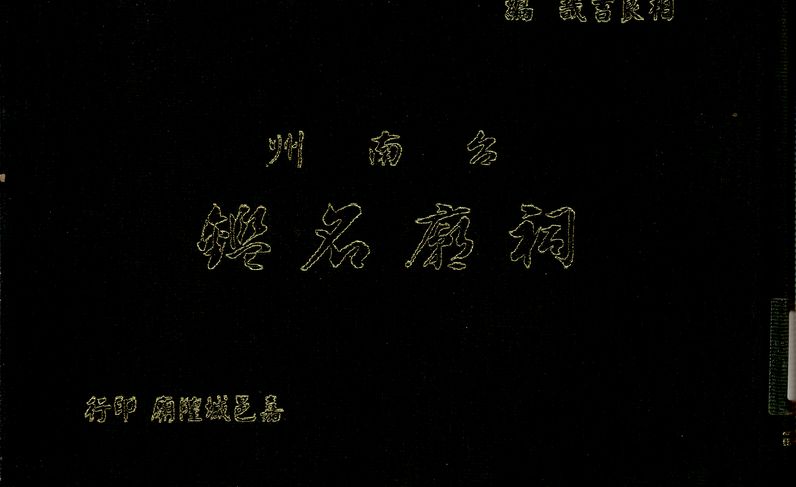 相良吉哉 編
台南州
祠廟名鑑
嘉邑城隍廟 印行